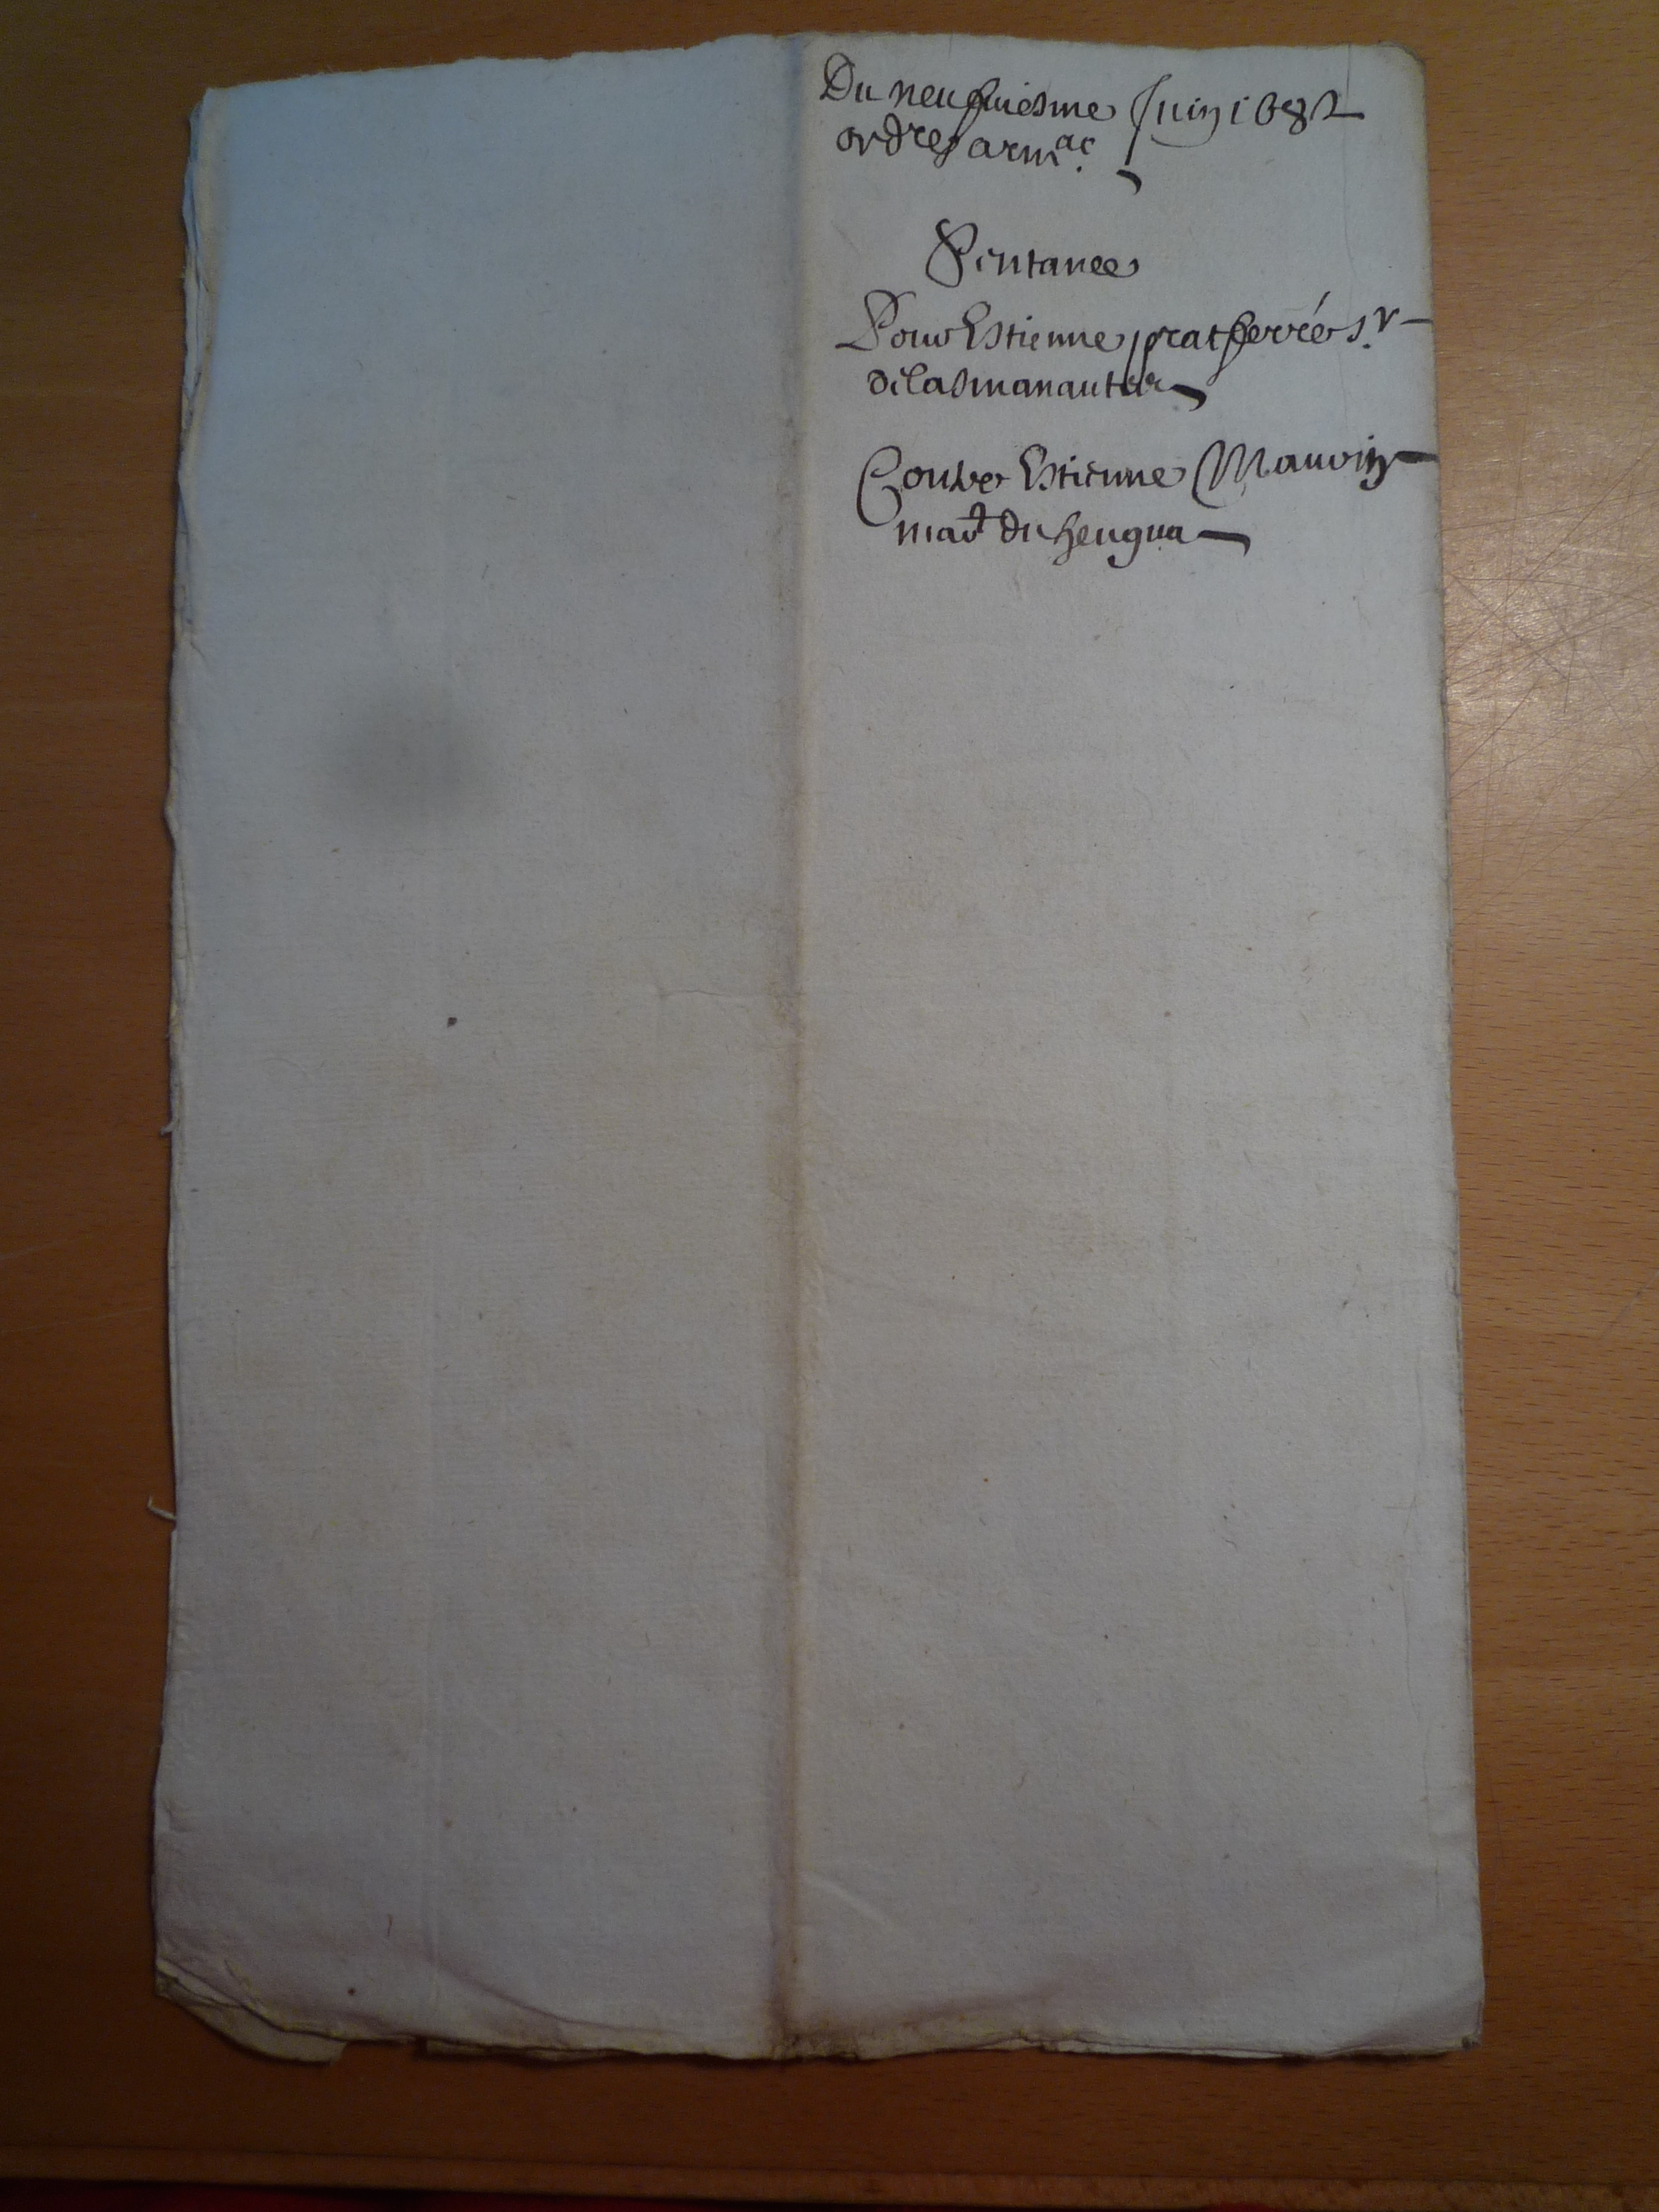 Du neufuiesme Juin 1682
ordre arm.ac
Sentance
Pour Estienne pratferré s.r
de lasmanautes
Contre Estienne Mauvin
mart du heugua